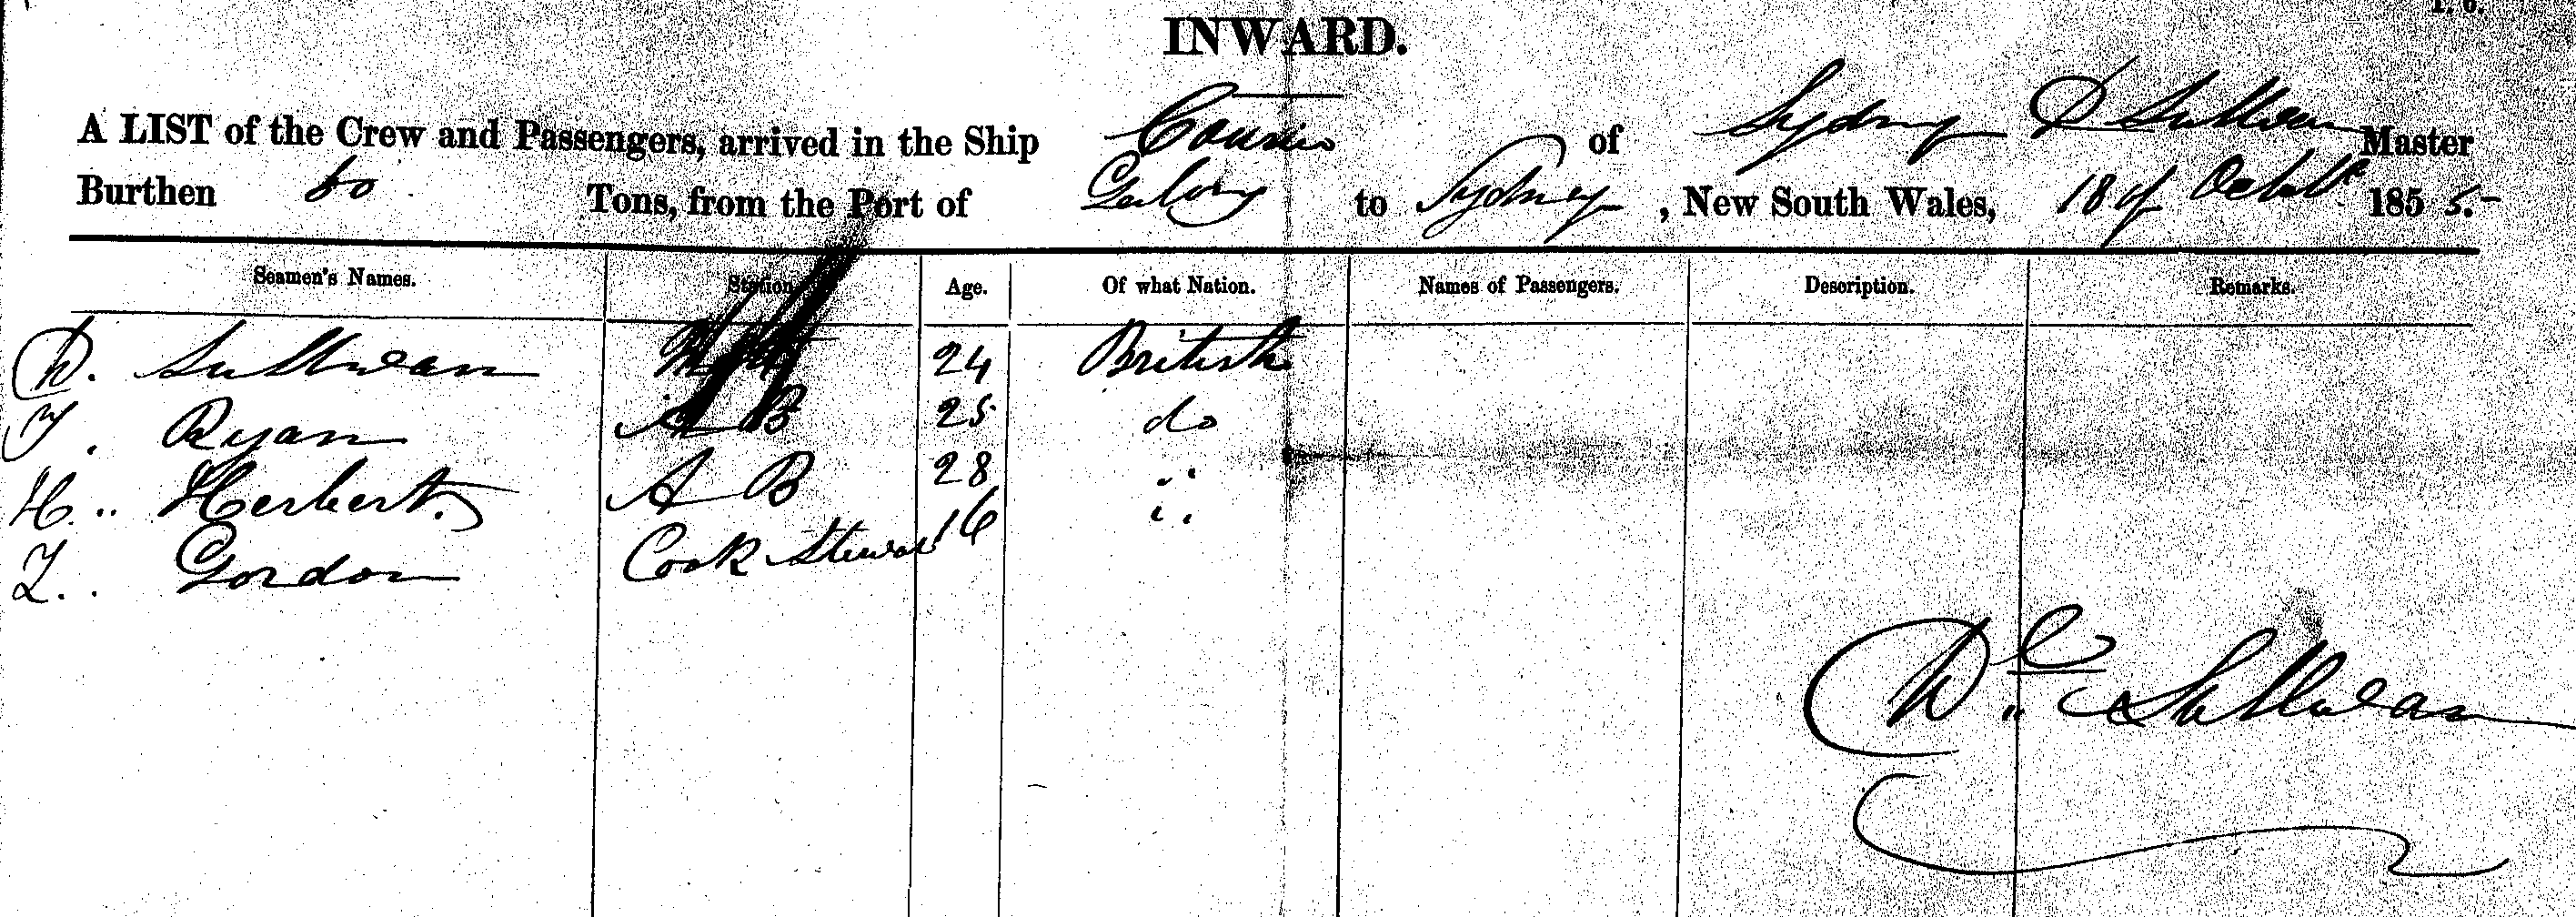 INWARD.
A LIST of the Crew and Passengers, arrived in the Ship Cousins of Sydney D Sullivan Master
Burthen 60 Tons, from the Port of to Sydney, New South Wales, 18 of Octobr 1855.-
Seamen's Names. Station Age. Of what Nation. Names of Passengers. Description. Remarks.
D. Sullivan 24 British
T. Ryan A B 25 do
H.. Herbert. A B 28 "
Gordon Cook Steward 16 "
D. Sullivan